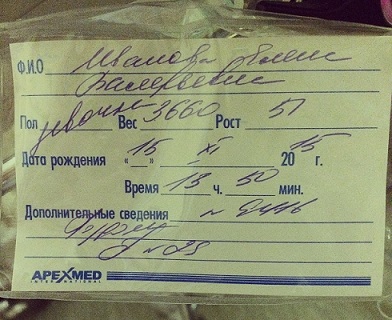 Ф.И.О Иванова Елена
Валерьевна
Пол девочка Вес 3660 Рост 51
Дата рождения «15» XI 2015 г.
Время 13 ч. 50 мин.
Дополнительные сведения
n 25
APEXMED
INTERNATIONAL